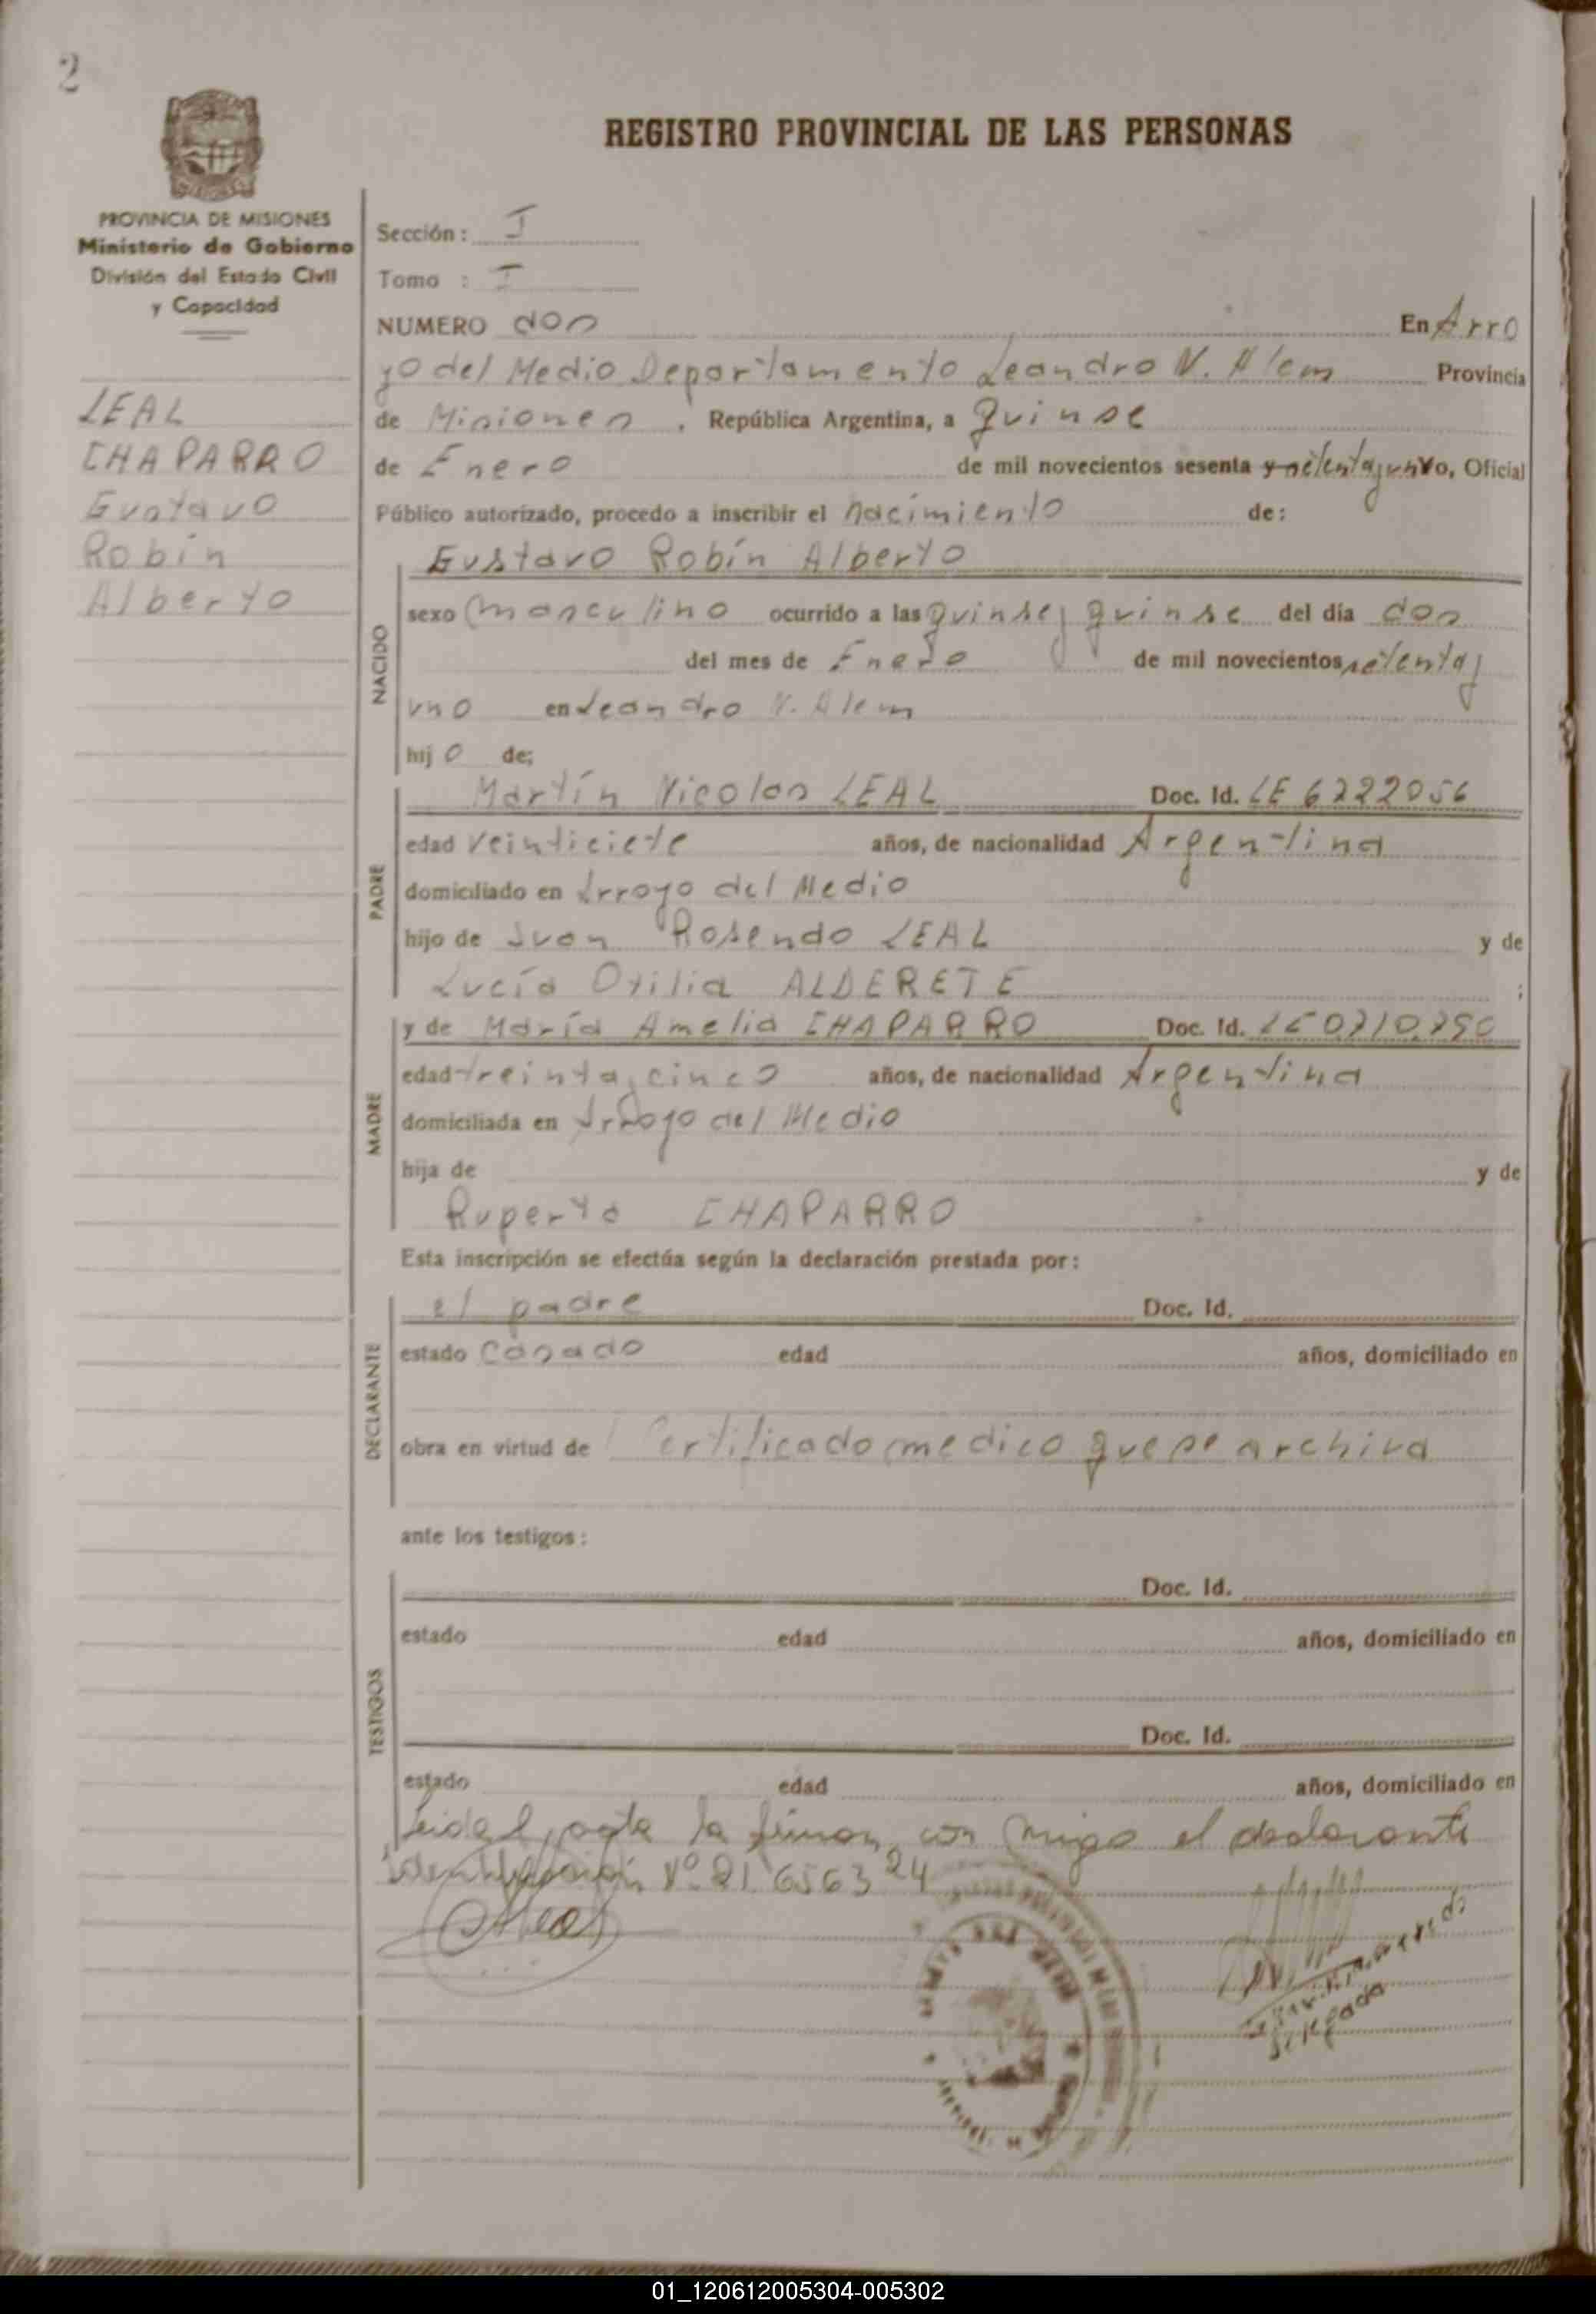 2
REGISTRO PROVINCIAL DE LAS PERSONAS
PROVINCIA DE MISIONES
Ministerio de Gobierno
División del Estado Civil
y Capacidad
LEAL
CHAPARRO
Gustavo
Robín
Alberto
Sección: I
Tomo : I
NUMERO dos En Arro
yo del Medio Departamento Leandro N. Alem Provincia
de Misiones, República Argentina, a quinse
de Enero de mil novecientos sesenta y setenta y uno, Oficial
Público autorizado, procedo a inscribir el nacimiento de:
NACIDO
Gustavo Robín Alberto
sexo masculino ocurrido a las quinse y quinse del día dos
del mes de Enero de mil novecientos setenta y
uno en Leandro N. Alem
hij o de;
PADRE
Martín Nicolas LEAL Doc. Id. LE
edad veinticiete años, de nacionalidad Argentina
domiciliado en Arroyo del Medio
hijo de Juan Rosendo LEAL y de
Lucía Otilia ALDERETE ;
MADRE
y de María Amelia CHAPARRO Doc. Id.
edad treinta y cinco años, de nacionalidad Argentina
domiciliada en Arroyo del Medio
hija de y de
Ruperta CHAPARRO
Esta inscripción se efectúa según la declaración prestada por:
DECLARANTE
el padre Doc. Id.
estado Casado edad años, domiciliado en
obra en virtud de Certificado medico que se archiva
ante los testigos:
TESTIGOS
Doc. Id.
estado edad años, domiciliado en
Doc. Id.
estado edad años, domiciliado en
Leida el acta la firman con migo el declarante
Nº 21.656324
01_120612005304-005302